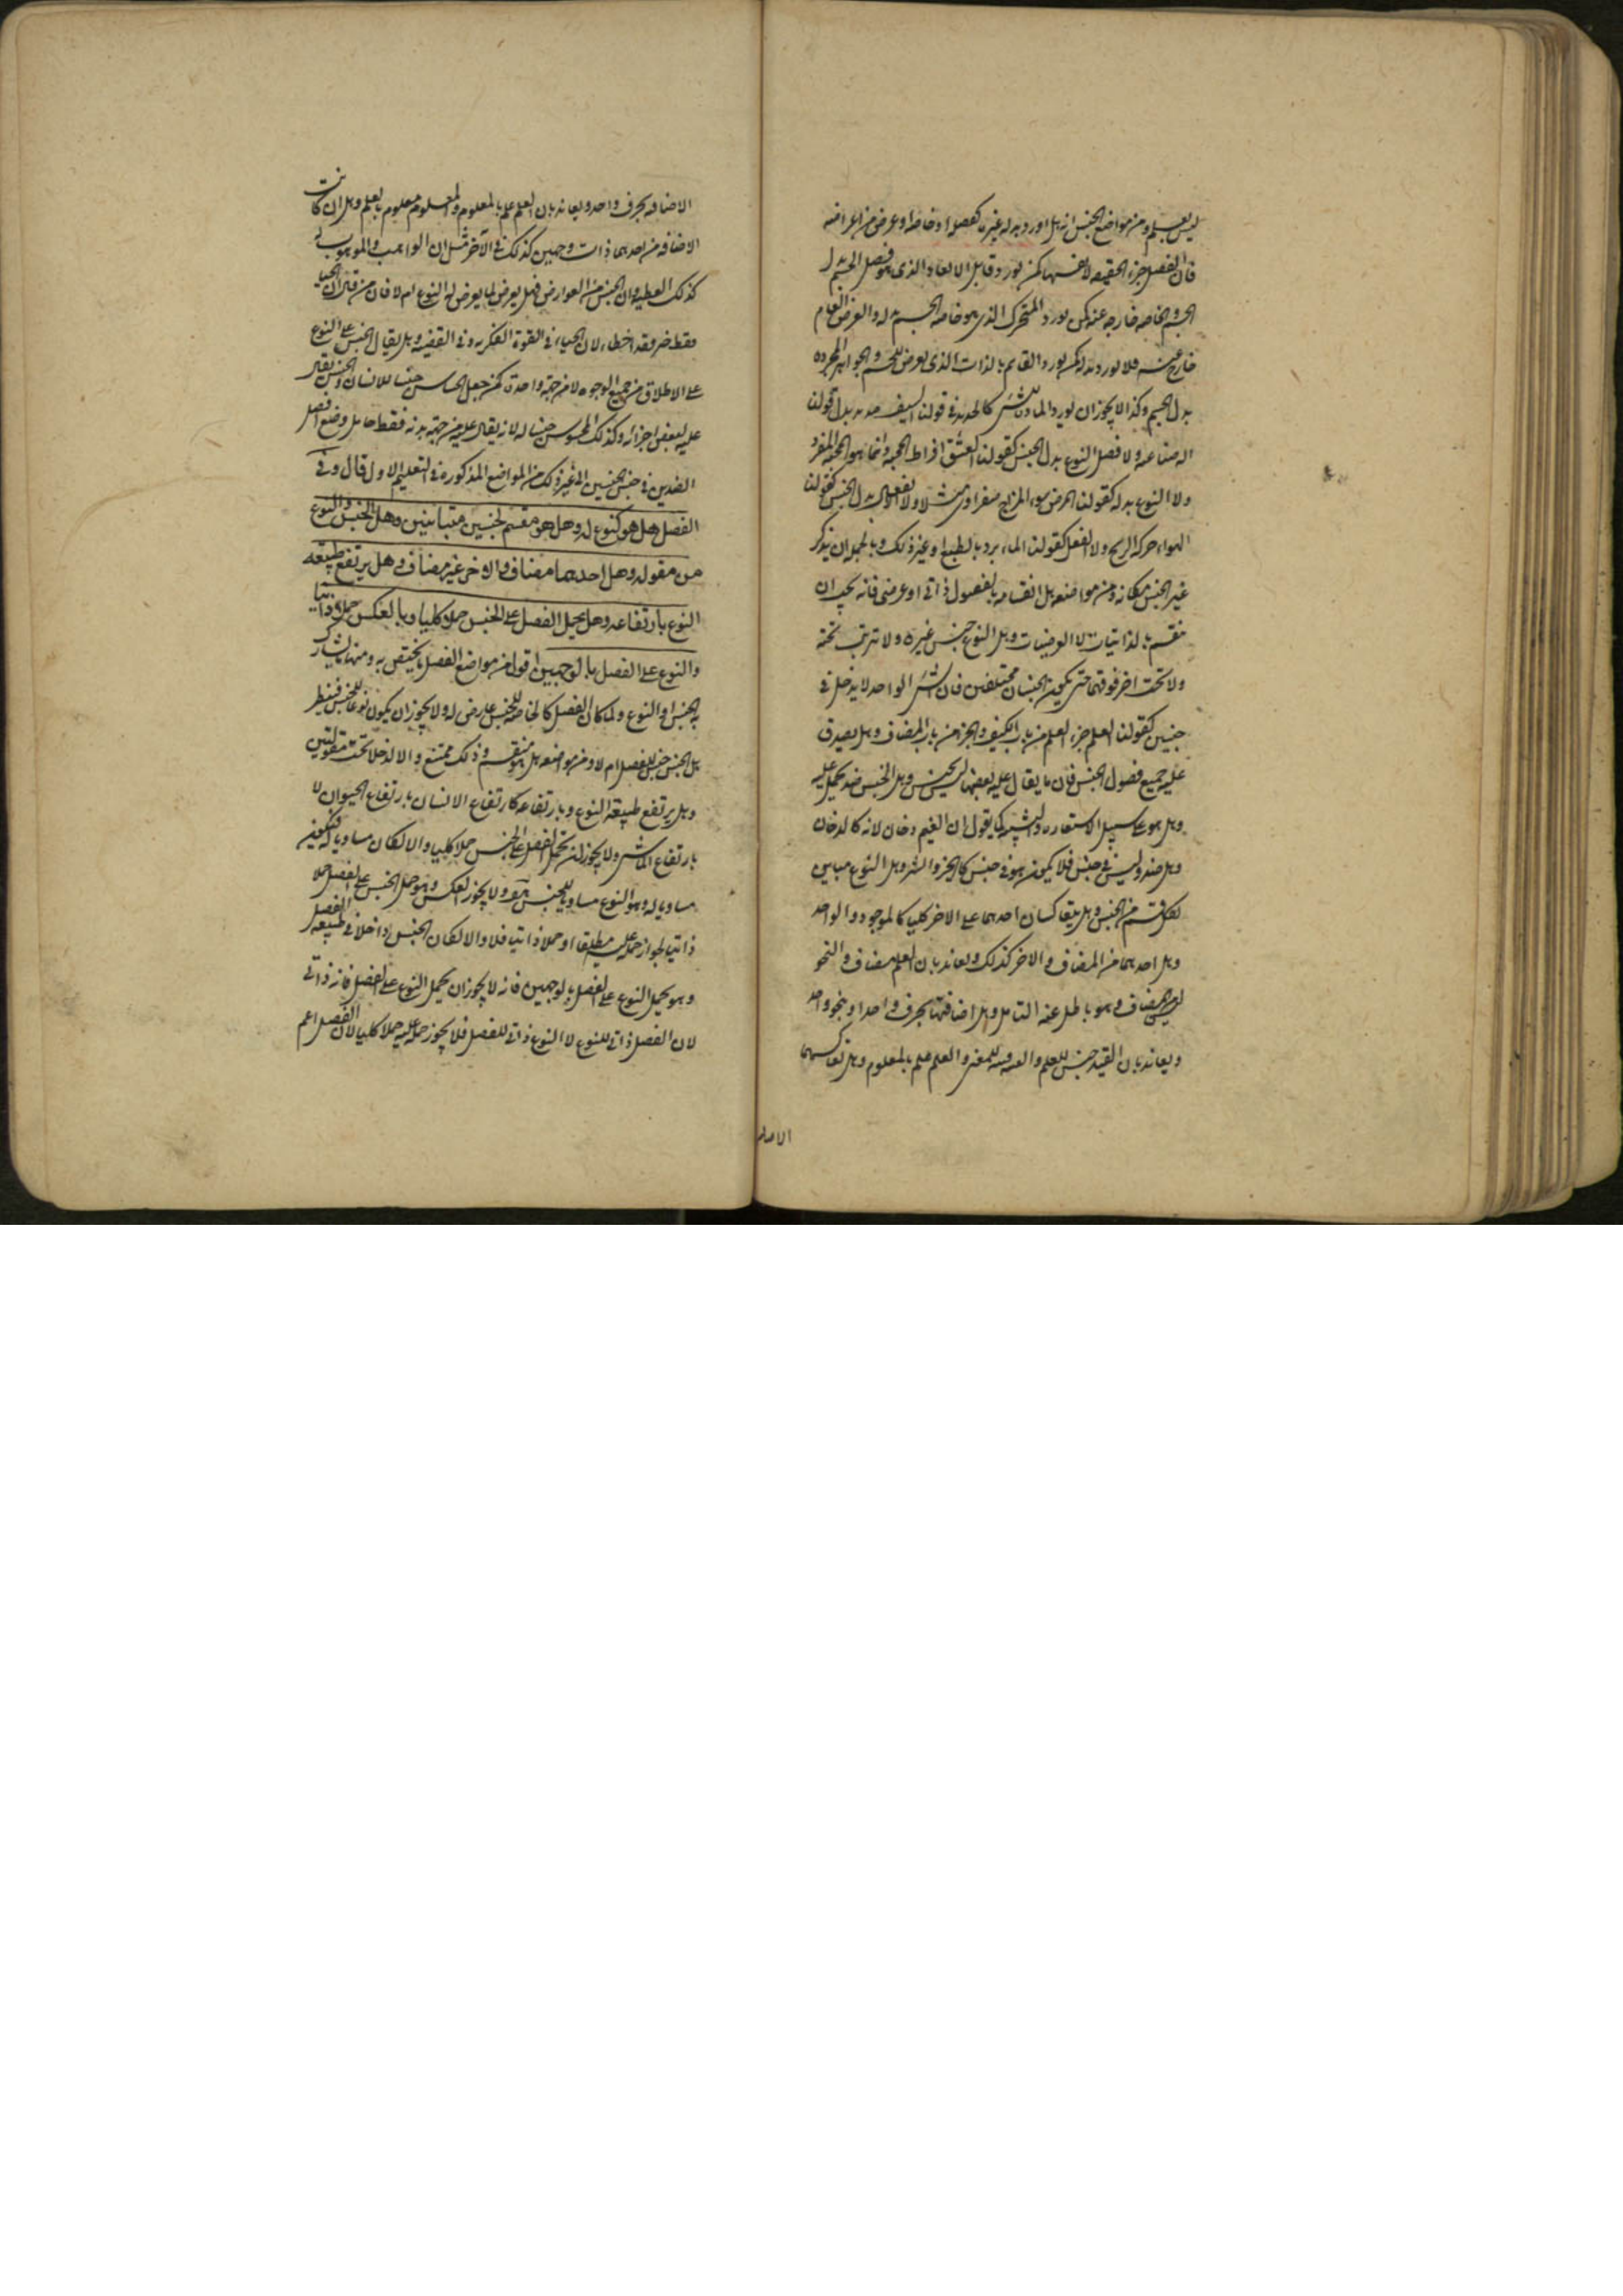 ليس بعلم ومن مواضع الجنس انه هل اورد بدله غيره كفصله او خاصة او عرض من اعراضه
فان الفصل جزء الحقيقة لا نفسها كمن يورد قابل الابعاد الذى هو فصل الجسم بدل
الجسم والخاصه خارجه عنه كمن يورد المتحرك الذى هو خاصه الجسم بدله والعرض العام
خارج عنه فلا يورد بدله كمن يورد القائم بالذات الذى يعرض للجسم والجواهر المجرده
بدل الجسم وكذا لا يجوز ان يورد المادة للشئ كالحديد فى قولنا السيف حديد بدل قولنا
اله صناعية ولا فصل النوع بدل الجنس كقولنا العشق افراط المحبه وانما هو المحبة المفرد
ولا النوع بدله كقولنا المرض سوء المزاج صفراوى مثلا ولا الانفعال بدل الجنس كقولنا
الهواء حركه الريح ولا الفعل كقولنا الماء برد بالطبع او غير ذلك وبالجمله ان يذكر
غير الجنس مكانه ومن مواضعه هل انقسامه بالفصول ذاتى او عرضى فانه يجب ان
ينقسم بالذاتيات لا العرضيات وهل النوع جنس غيره ولا ترتب تحته
ولا تحت اخر فوقهما حتى يكون الجنسان مختلفين فان الشئ الواحد لا يدخل فى
جنسين كقولنا العلم جزء العلم من باب الكيف والجزء من باب المضاف وهل يصدق
عليه جميع فصول الجنس فان ما يقال عليه بعضها ليس بجنس وهل الجنس ضد يحمل عليه
وهل هو على سبيل الاستعاره والتشبيه كما يقول ان الغيم دخان لانه كالدخان
وهل ضده ليس فى جنس فلا يكون هو فى جنس كالخير والشر وهل النوع مباين
لكل قسم من الجنس وهل يتعاكسان احدهما على الاخر كليا كالموجود والواحد
وهل احدهما من المضاف والاخر كذلك ويعاند بان العلم مضاف والنحو
ليس بمضاف وهو باطل عند التامل وهل اضافتهما بحرف واحد او بنحو واحد
ويعاند بان القنية جنس للعلم والقنيه قنيه للمقتنى والعلم علم بالمعلوم وهل تعاكسهما
الاضافه
الاضافه بحرف واحد ويعاند بان العلم علم بالمعلوم والمعلوم معلوم بالعلم وهل ان كانت
الاضافه من احدهما ذات وجهين كذلك فى الآخر مثل ان الواهب والموهوب له
كذلك العطية وان الجنس من العوارض فهل يعرض لما يعرض له النوع ام لا فان من قال ان الحياء
فقط ضر وقد اخطاء لان الحياء فى القوة الفكريه وفى القضيه وهل يقال الجنس على النوع
على الاطلاق من جميع الوجوه لا من جهة واحدة كمن جعل الحاس جنسا للانسان والجنس يقال
عليه لبعض اجزائه وكذلك المحسوس جنسا له لانه يقال عليه من جهة بدنه فقط هل وضع الفصل
الضدين فى جنس الجنسين الى غير ذلك من المواضع المذكورة فى التعليم الاول قال وفى
الفصل هل هو كنوع له وهل هو مقسم لجنسين متباينين وهل الجنس والنوع
من مقوله وهل احدهما مضاف والاخر غير مضاف وهل يرتفع طبيعه
النوع بارتفاعه وهل يحمل الفصل على الجنس حملا كليا وبالعكس حملا ذاتيا
والنوع على الفصل بالوجهين اقول من مواضع الفصل ما يختص به ومنها ما يشارك
به الجنس او النوع ولما كان الفصل كالخاصه للجنس عارض له ولا يجوز ان يكون نوعا للجنس فينظر
هل الجنس جنس للفصل ام لا ومن مواضعه هل هو منقسم وذلك ممتنع والا لدخلا تحت مقولتين
وهل يرتفع طبيعة النوع وبارتفاعه كارتفاع الانسان بارتفاع الحيوان لا
بارتفاع الماشى ولا يجوز ان يحمل الفصل على الجنس حملا كليا والا لكان مساويا له فيكون
مساويا له وهو النوع مساويا للجنس هو ولا يجوز العكس وهو حمل الجنس على الفصل حملا
ذاتيا لجواز حمله عليه مطلقا او حملا ذاتيا فلا والا لكان الجنس داخلا فى طبيعه الفصل
وهو يحمل النوع على الفصل بالوجهين فانه لا يجوز ان يحمل النوع على الفصل فانه ذاتى
لان الفصل ذاتى للنوع لا النوع ذاتى للفصل فلا يجوز حمله عليه حملا كليا لان الفصل اعم